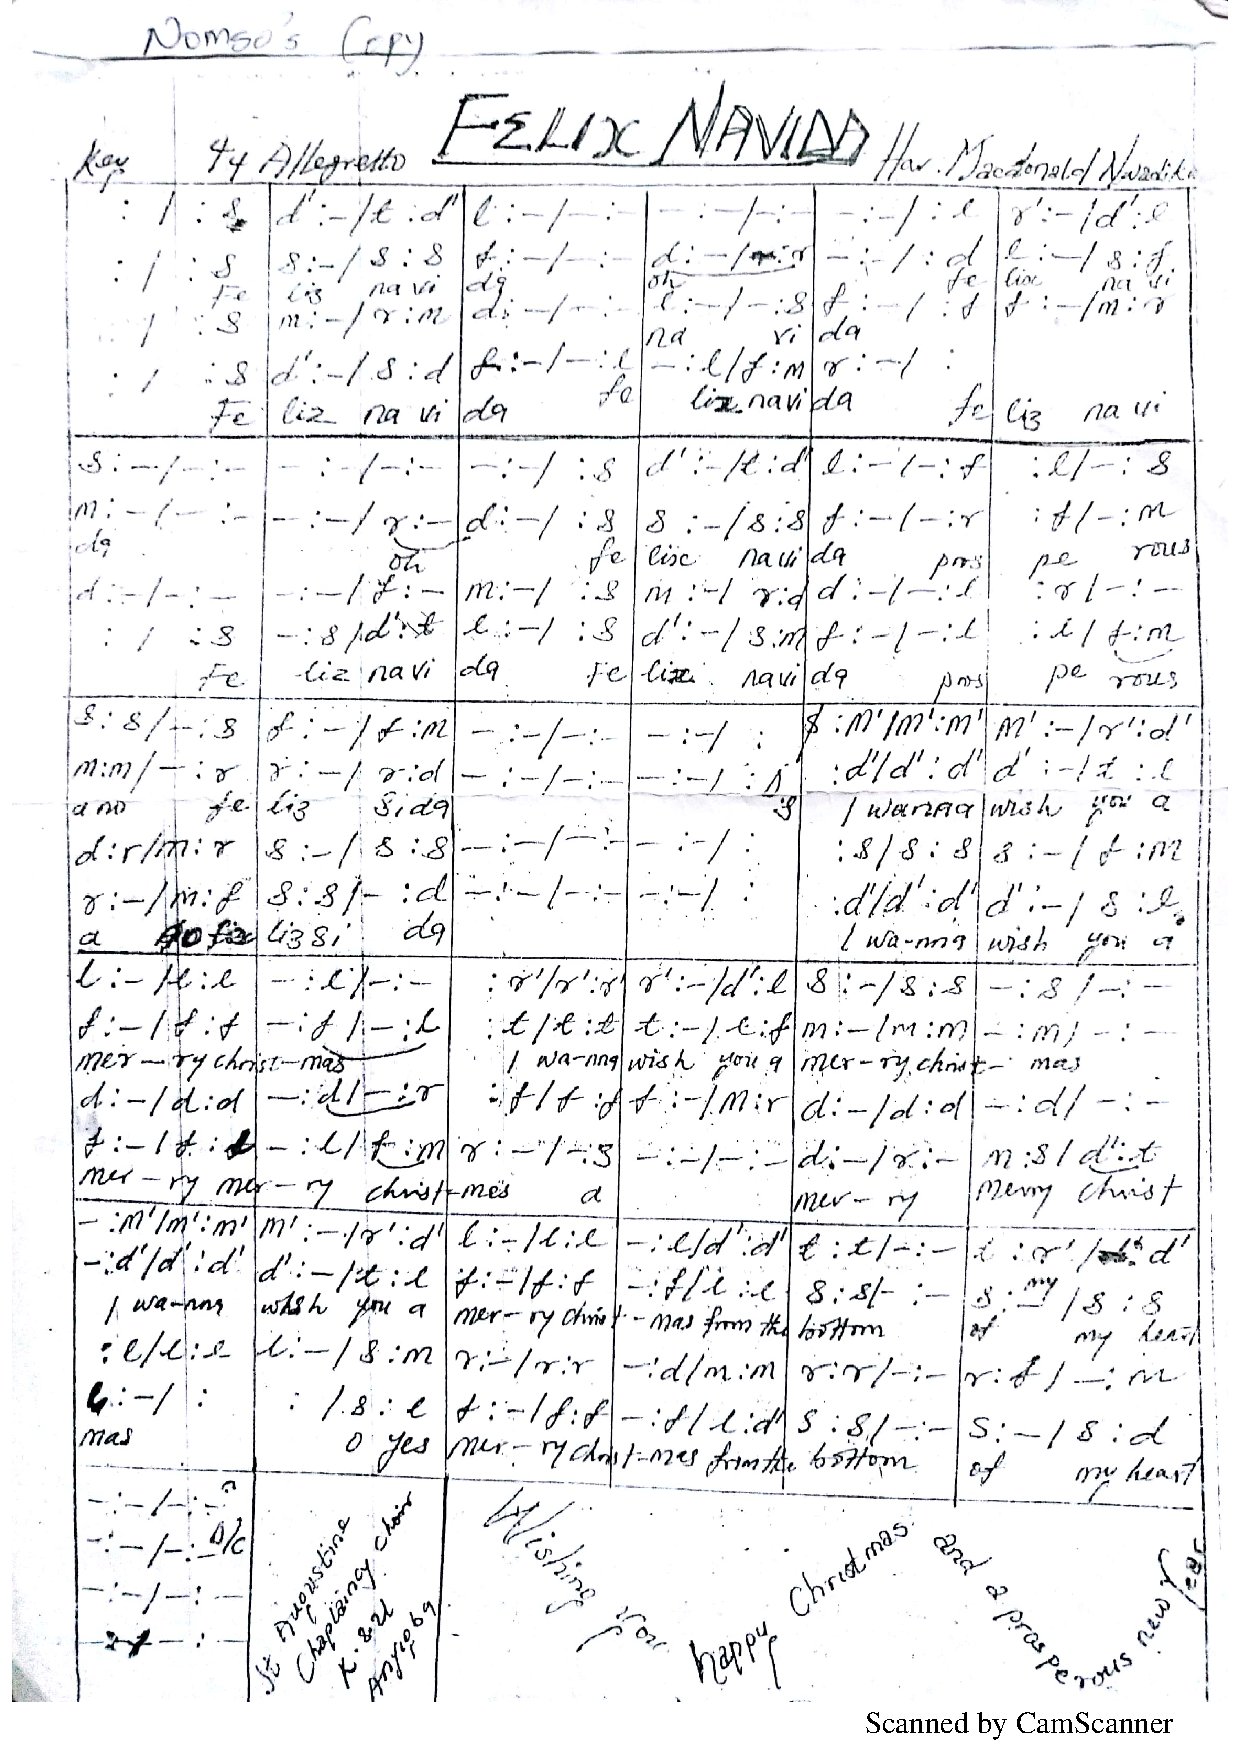 Nomso's Copy
FELIX NAVIDA
Key 4/4 Allegretto Har. Macdonald
: / : s | d' :- / t : d' | l :- / - :- | - :- / - :- | - :- / : l | r' :- / d' : l
: / : s | s :- / s : s | f :- / - :- | d :- / - : r | - :- / : d | l :- / s : f
Fe liz na vi da oh fe lix na vi
: / : s | m :- / r : m | d :- / - :- | l :- / - : s | f :- / : f | f :- / m : r
na vi da
: / : s | d' :- / s : d | f :- / - : l | - : l / f : m | r :- / :
Fe liz na vi da fe liz navi da fe liz na vi
s :- / - :- | - :- / - :- | - :- / : s | d' :- / t : d' | l :- / - : f | : l / - : s
m :- / - :- | - :- / r :- | d :- / : s | s :- / s : s | f :- / - : r | : f / - : m
da oh fe lix navi da pros pe rous
d :- / - :- | - :- / f :- | m :- / : s | m :- / r : d | d :- / - : l | : r / - :-
: / : s | - : s / d' : t | l :- / : s | d' :- / s : m | f :- / - : l | : l / f : m
Fe liz navi da Fe liz navi da pros pe rous
s : s / - : s | f :- / f : m | - :- / - :- | - :- / : | s : m' / m' : m' | m' :- / r' : d'
m : m / - : r | r :- / r : d | - :- / - :- | - :- / : s | : d' / d' : d' | d' :- / t : l
a no fe liz sida I wanna wish you a
d : r / m : r | s :- / s : s | - :- / - :- | - :- / : | : s / s : s | s :- / f : m
r :- / m : f | s : s / - : d | - :- / - :- | - :- / : | : d' / d' : d' | d' :- / s : l
a liz si da I wa-nna wish you a
l :- / l : l | - : l / - :- | : r' / r' : r' | r' :- / d' : l | s :- / s : s | - : s / - :-
f :- / f : f | - : f / - : l | : t / t : t | t :- / l : f | m :- / m : m | - : m / - :-
mer-ry christ-mas I wa-nna wish you a mer-ry christ-mas
d :- / d : d | - : d / - : r | : f / f : f | f :- / m : r | d :- / d : d | - : d / - :-
f :- / f : f | - : l / f : m | r :- / - : s | - :- / - :- | d :- / r :- | m : s / d' : t
mer-ry mer-ry christ-mes a mer-ry merry christ
- : m' / m' : m' | m' :- / r' : d' | l :- / l : l | - : l / d' : d' | t : t / - :- | t : r' / : d'
- : d' / d' : d' | d' :- / t : l | f :- / f : f | - : f / l : l | s : s / - :- | s :- / s : s
I wa-nna wish you a mer-ry christ-mas from the bottom of my heart
: l / l : l | l :- / s : m | r :- / r : r | - : d / m : m | r : r / - :- | r : f / - : m
l :- / : | : / s : l | f :- / f : f | - : f / l : d' | s : s / - :- | s :- / s : d
mas o yes mer-ry christ-mas from the bottom of my heart
- :- / - :-
- :- / - :- D/C
- :- / - :-
- :-
St Augustine
Chaplaincy choir
Wishing you happy Christmas and a prosperous new year
Scanned by CamScanner